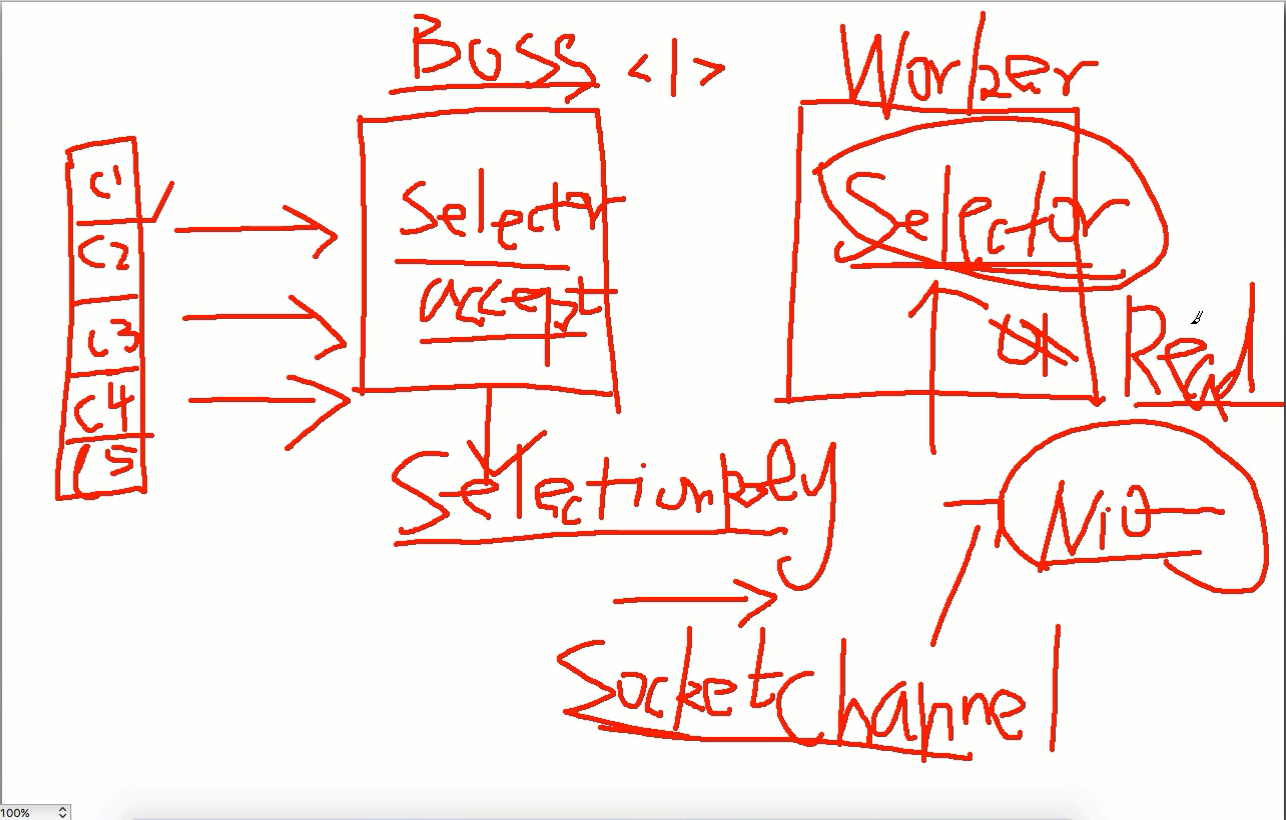 Boss <1>
Worker
C1
C2
C3
C4
C5
Selector
accept
Selector
Read
SelectionKey
Nio
SocketChannel
100%